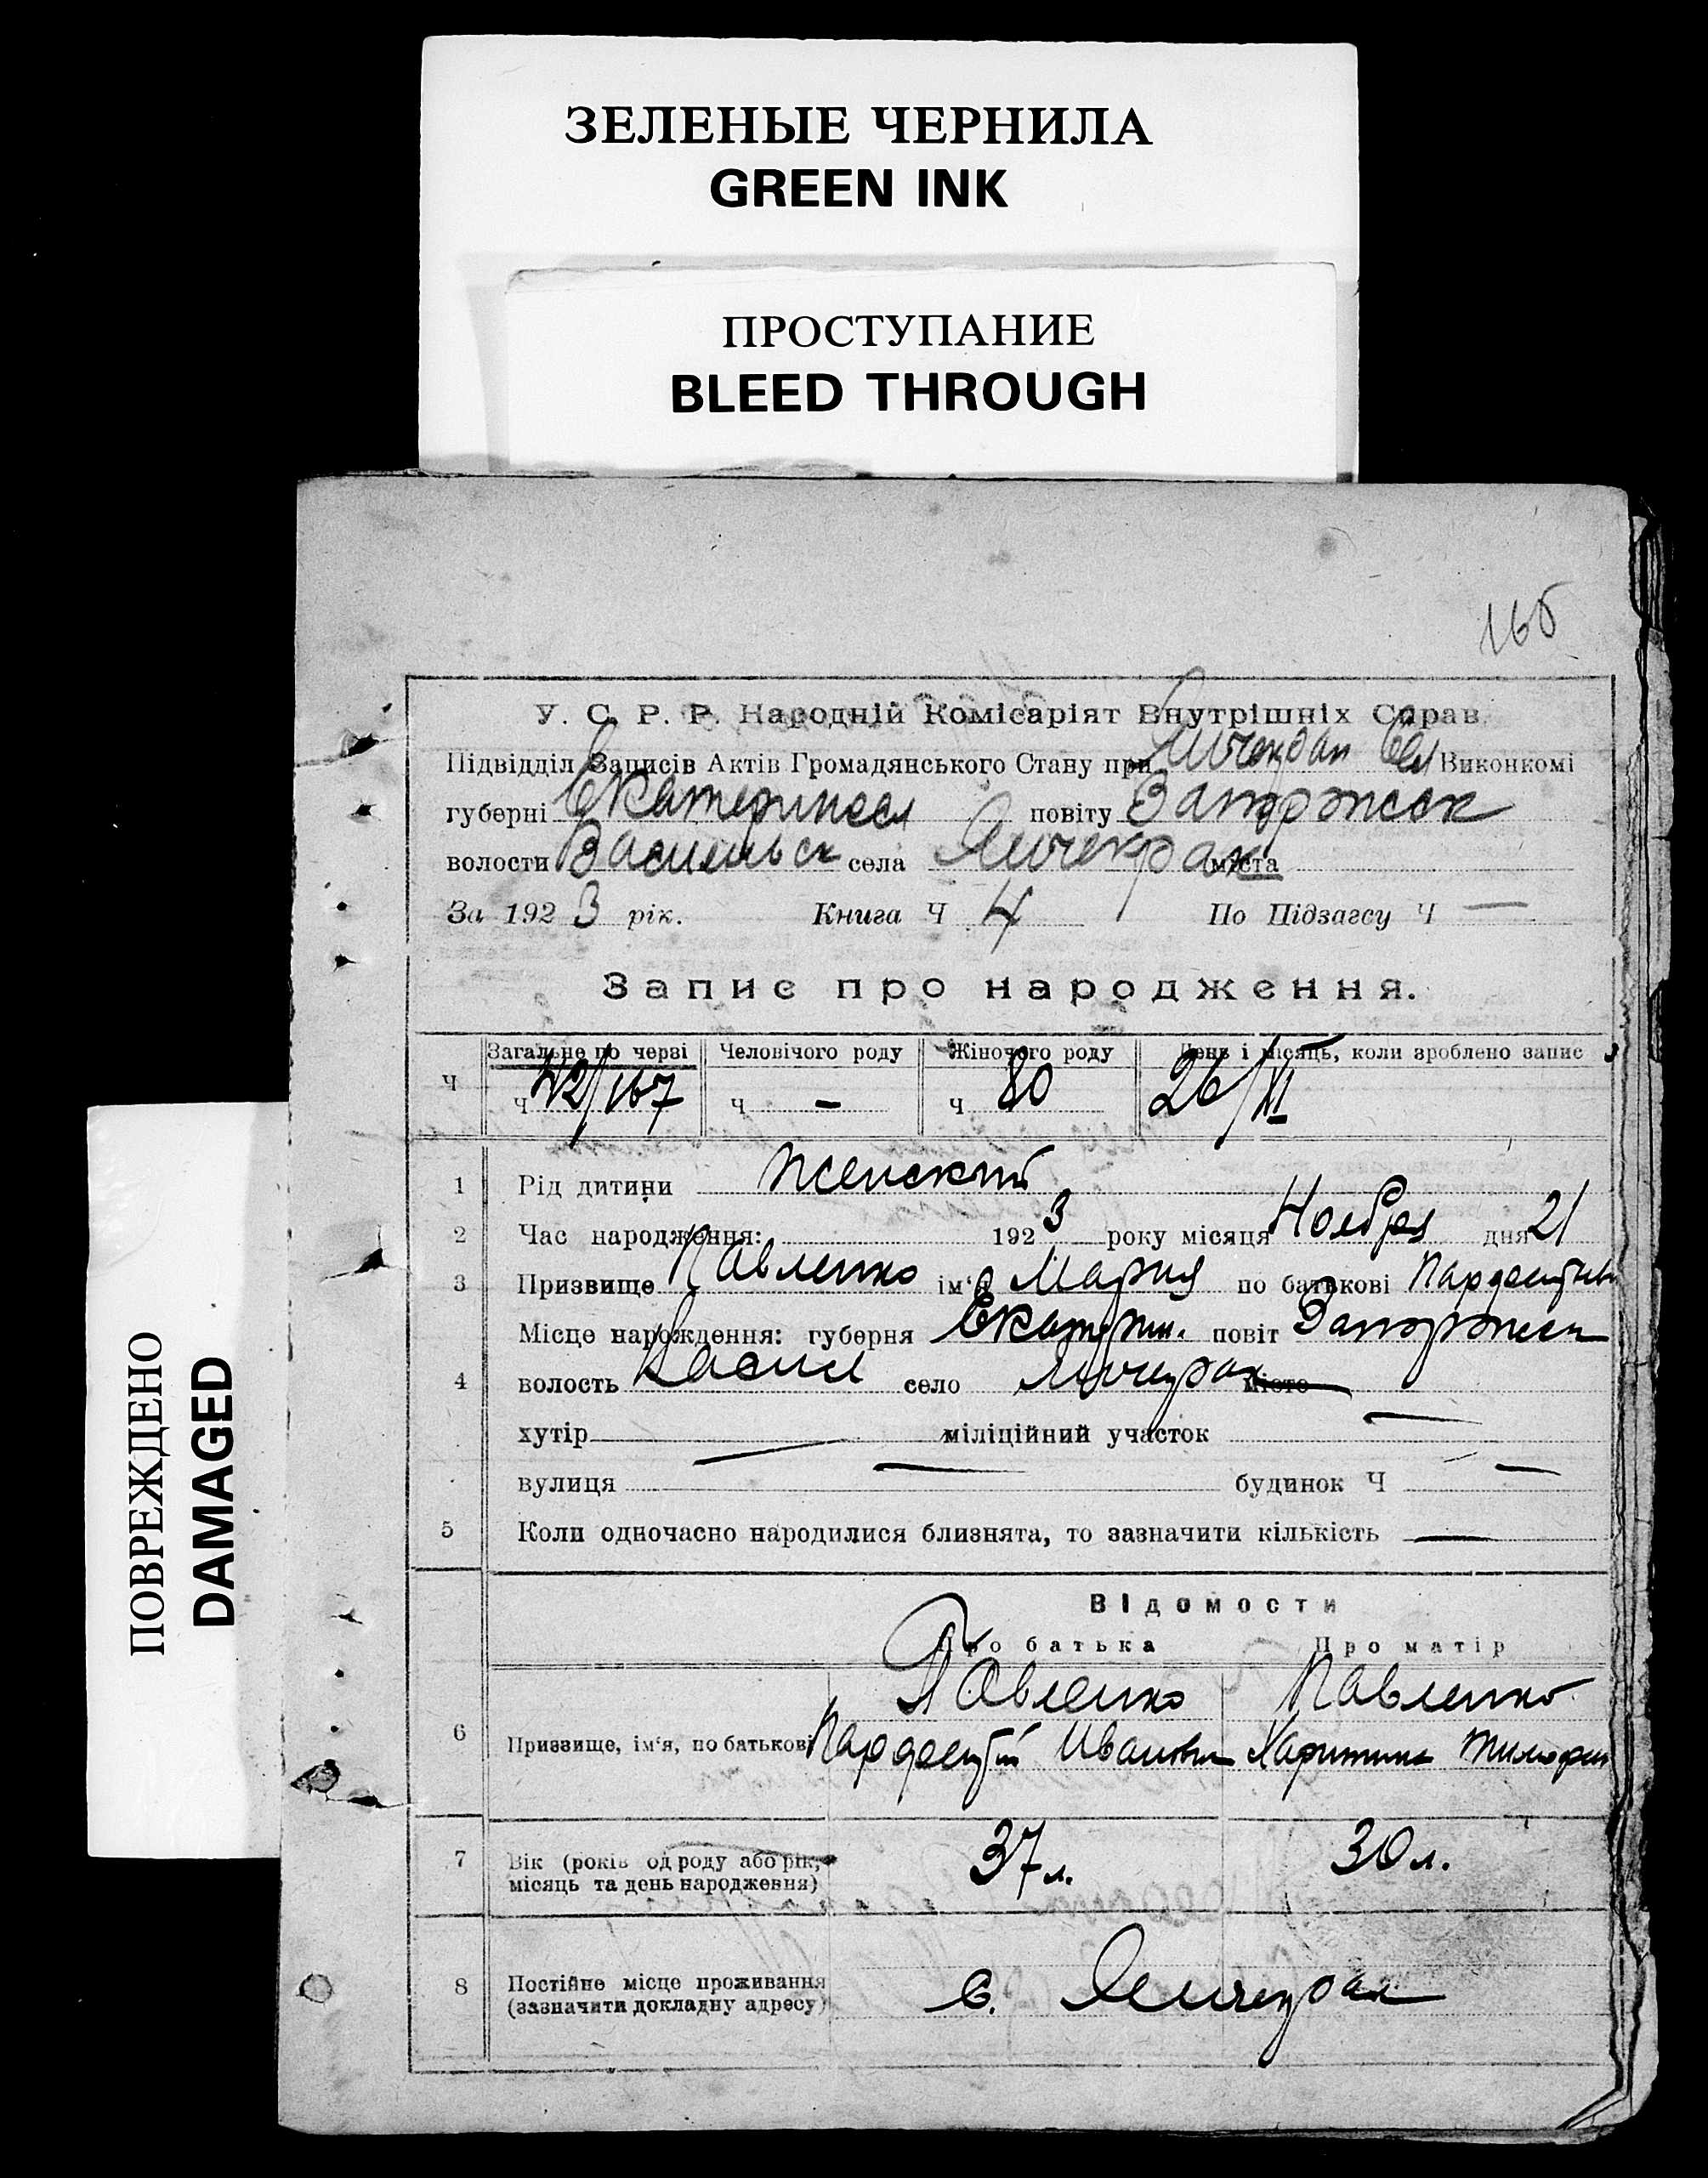 ЗЕЛЕНЫЕ ЧЕРНИЛА
GREEN INK
ПРОСТУПАНИЕ
BLEED THROUGH
ПОВРЕЖДЕНО
DAMAGED
У. С. Р. Р. Народній Комісаріят Внутрішніх Справ.
Підвідділ Записів Актів Громадянського Стану при Янчекрак Сел Виконкомі
губерні Екатериносл повіту Запорожск
волости Васильевск села Янчекрак міста
За 1923 рік. Книга Ч 4 По Підзагсу Ч —
Запис про народження.
Загальне по черзі Человічого роду Жіночого роду День і місяць, коли зроблено запис
Ч Ч 42/167 Ч - Ч 80 26/XI
1 Рід дитини женский
2 Час народження: 1923 року місяця Ноября дня 21
3 Призвище Павленко ім'я Мария по батькові
Місце народження: губерня Екатерин. повіт Запорожск
4 волость Васил село Янчекрак місто
хутір — міліційний участок —
вулиця — будинок Ч —
5 Коли одночасно народилися близнята, то зазначити кількість —
Відомости
Про батька Про матір
Павленко Павленко
6 Призвище, ім'я, по батькові Иванович Харитина Тимофеев
7 Вік (років од роду або рік, місяць та день народження) 37 л. 30 л.
8 Постійне місце проживання (зазначити докладну адресу) с. Янчекрак